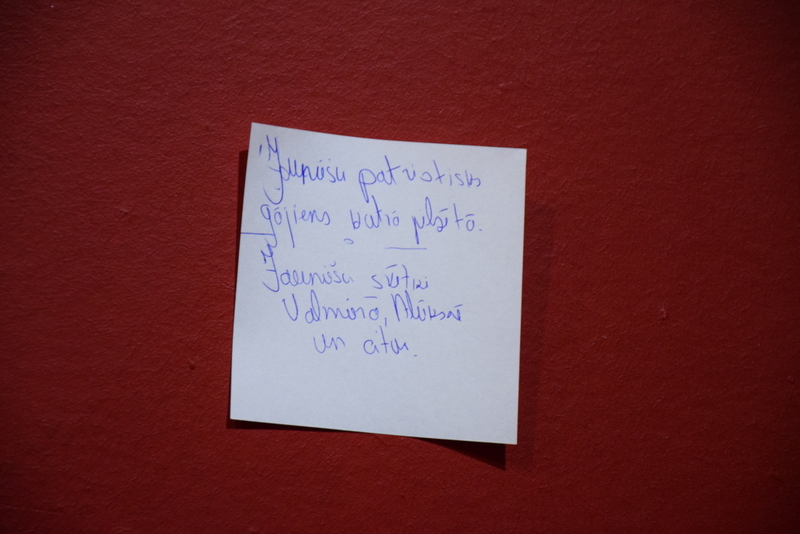 Jauniešu patriotisks
gājiens katrā pilsētā.
Jauniešu svētki
Valmierā, Alūksnē
un citur.